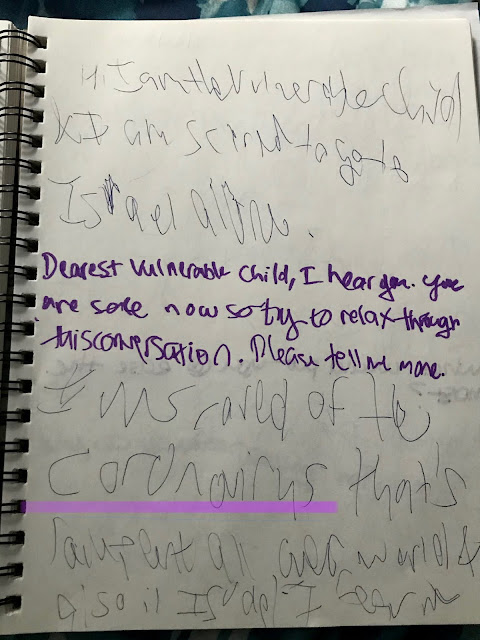 Hi I am the Vulnerable Child
& I am scared to go to
Israel alone.
Dearest Vulnerable Child, I hear you. You
are safe now so try to relax through
this conversation. Please tell me more.
I'm scared of the
Coronavirus that's
rampant all over world &
also in Israel I fear